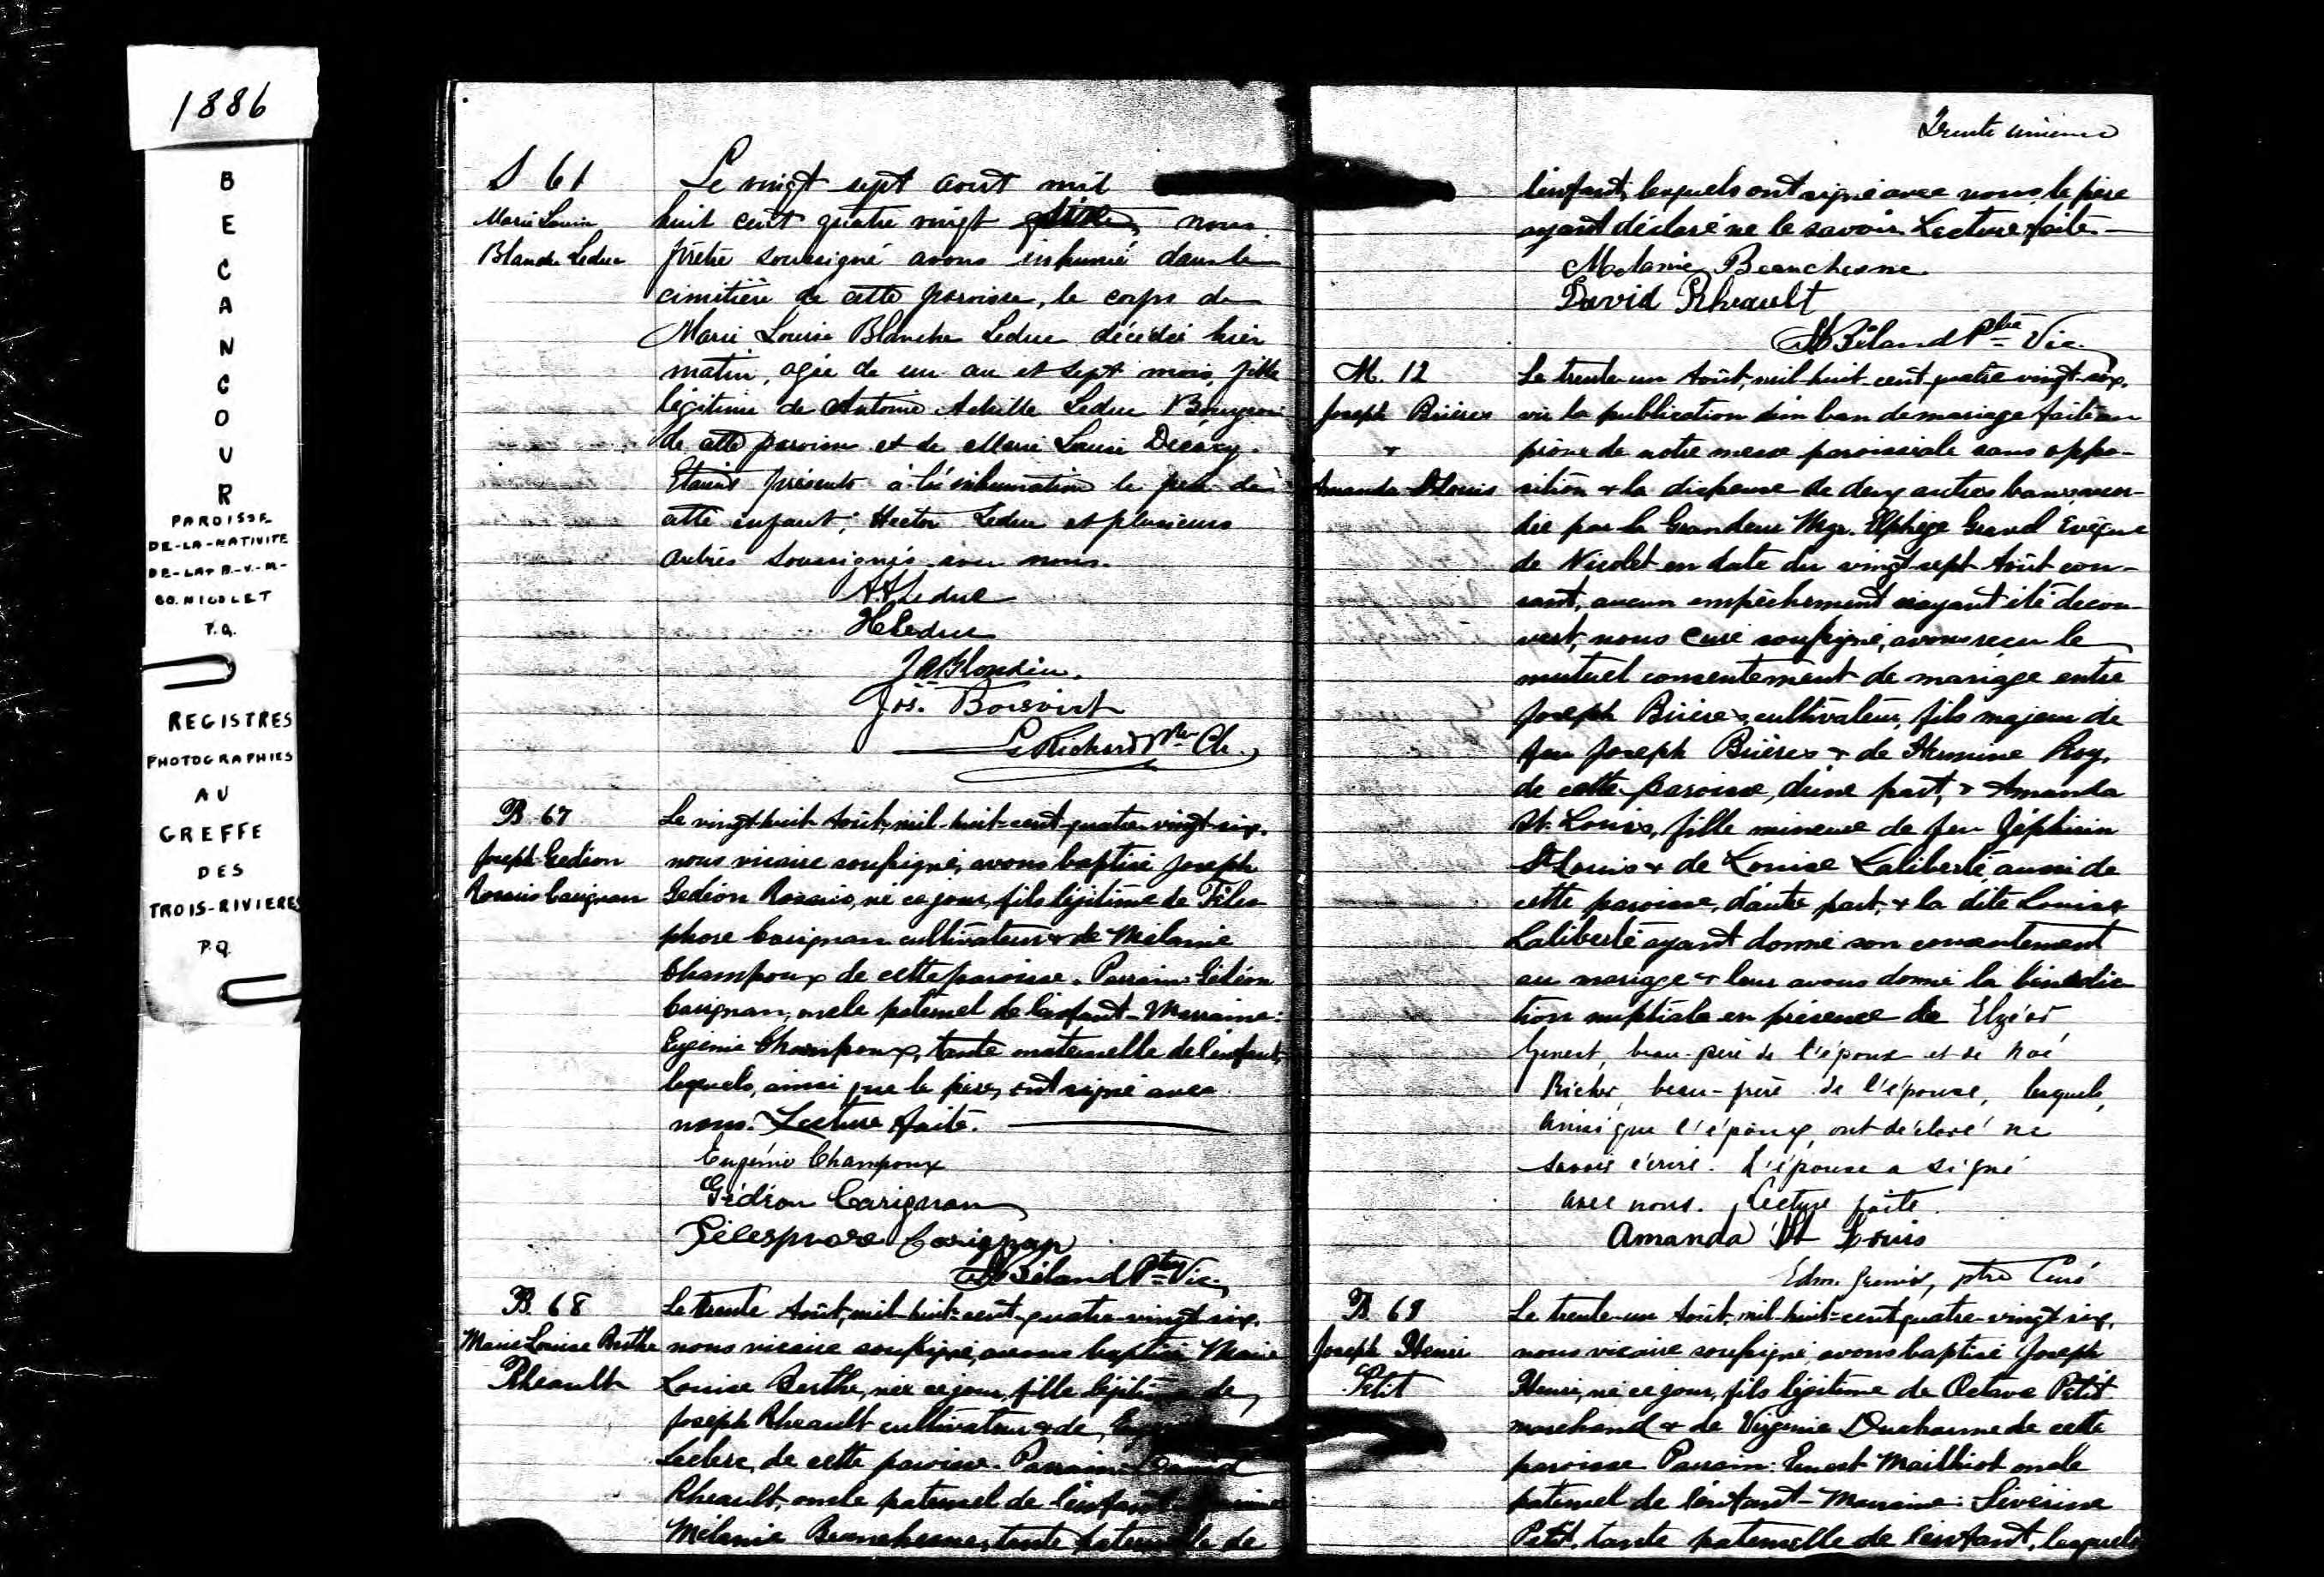 1886
B
E
C
A
N
C
O
U
R
PAROISSE
DE-LA-NATIVITE
DE-LA-B-V-M-
CO. NICOLET
P.Q.
REGISTRES
PHOTOGRAPHIES
AU
GREFFE
DES
TROIS-RIVIERES
P.Q.
S 61
Marie Louise
Blanche Leduc
Le vingt sept aout mil
huit cent quatre vingt six, nous
prêtre soussigné avons inhumé dans le
cimitière de cette paroisse, le corps de
Marie Louise Blanche Leduc décédée hier
matin, agée de un an et sept mois, fille
légitime de Antoine Achille Leduc Bourgeois
de cette paroisse et de Marie Louise Décary.
Etaient présents à l'inhumation le père de
cette enfant; Hector Leduc et plusieurs
autres soussignés avec nous.
A.A Leduc
H Leduc
J A Blondin.
Jos. Boisvert
L Richard Ptre Ch.
B. 67
Joseph Gedion
Rosario Carignan
Le vingt-huit Août, mil-huit-cent-quatre-vingt-six,
nous vicaire soussigné, avons baptisé Joseph
Gedion Rosario, né ce jour, fils légitime de Téles-
phore Carignan cultivateur & de Mélanie
Champoux de cette paroisse. Parrain: Gédéon
Carignan, oncle paternel de l'enfant - Marraine:
Eugénie Champoux, tante maternelle de l'enfant,
lesquels, ainsi que le père, ont signé avec
nous. Lecture faite.
Eugénie Champoux
Gédéon Carignan
Télesphore Carignan
Béland Ptre Vic.
B. 68
Marie Louise Berthe
Rheault
Le trente Août, mil-huit-cent-quatre-vingt-six,
nous vicaire soussigné, avons baptisé Marie
Louise Berthe, née ce jour, fille légitime de
Joseph Rheault cultivateur & de
Leclerc, de cette paroisse. Parrain: David
Rheault, oncle paternel de l'enfant
Mélanie Beauchesne, tante paternelle de
Trente unieme
l'enfant, lesquels ont signé avec nous, le père
ayant déclaré ne le savoir. Lecture faite.
Melanie Beauchesne
David Rheault
Béland Ptre Vic.
M. 12
Joseph Brières
&
Amanda St Louis
Le trente-un Août, mil-huit-cent-quatre-vingt-six,
vu la publication d'un ban de mariage faite au
prône de notre messe paroissiale sans oppo-
sition & la dispense de deux autres bans accor-
dée par Sa Grandeur Mgr. Elphège Gravel Evêque
de Nicolet en date du vingt-sept Août cou-
rant, aucun empêchement n'ayant été décou-
vert, nous Curé soussigné, avons reçu le
mutuel consentement de mariage entre
Joseph Brières, cultivateur, fils majeur de
feu Joseph Brières & de Hermine Roy,
de cette paroisse, d'une part, & Amanda
St. Louis, fille mineure de feu Zéphirin
St Louis & de Louise Laliberté, aussi de
cette paroisse, d'autre part, & la dite Louise
Laliberté ayant donné son consentement
au mariage & leur avons donné la bénédic-
tion nuptiale en présence de Elzéar
Genest, beau-père de l'époux et de Noé
Richer, beau-père de l'épouse, lesquels,
ainsi que l'époux, ont déclaré ne
savoir écrire. L'épouse a signé
avec nous. Lecture faite.
Amanda St Louis
Edm. Grenier, ptre Curé
B. 69
Joseph Henri
Petit
Le trente-un Août, mil-huit-cent quatre-vingt six,
nous vicaire soussigné avons baptisé Joseph
Henri, né ce jour, fils légitime de Octave Petit
marchand & de Virginie Ducharme de cette
paroisse. Parrain: Ernest Mailhiot oncle
paternel de l'enfant - Marraine: Séverine
Petit, tante paternelle de l'enfant, lesquels